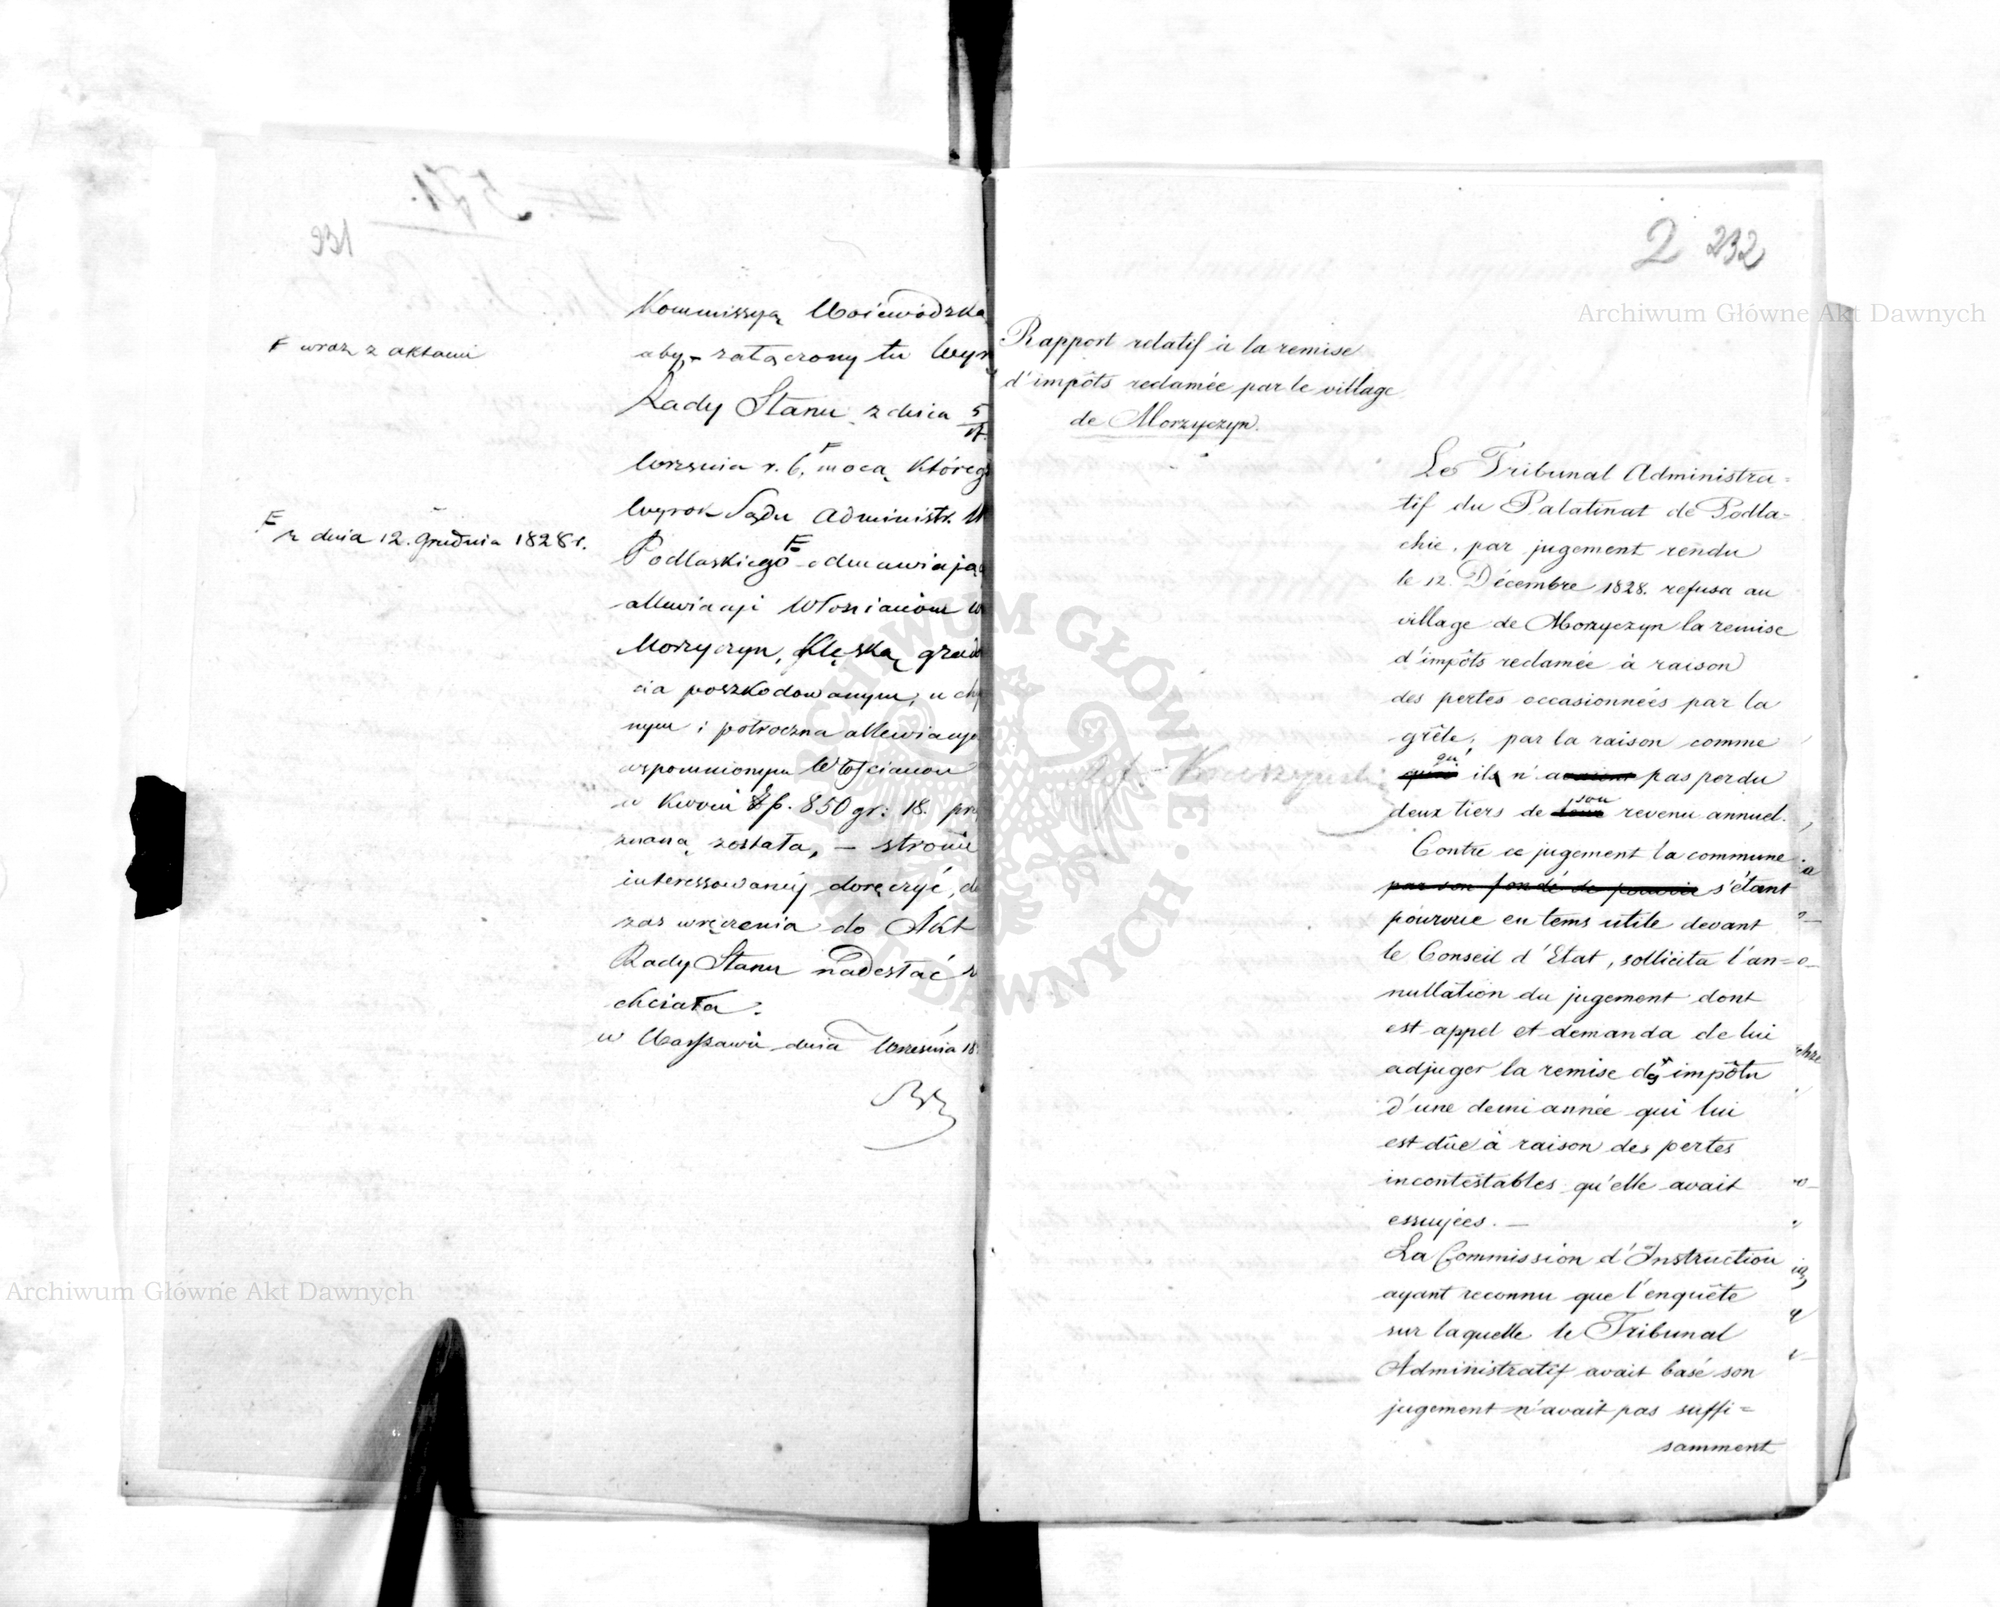 Kommissyą Wojewódzka
F wraz z aktami
aby, załączony tu
Rady Stanu z dnia 5/17
Września r. b. F mocą którego
wyrok Sądu Administr.
F z dnia 12. Grudnia 1828 r.
Podlaskiego F odmawiają
allewiacyi Włościanom
Morzyczyn, klęską
cia poszkodowanym,
nym i półroczna allewiacya
wspomnionym Włościanom
w kwocie Zł. 850 gr: 18.
znaną została, — stronie
interessowanéj doręczyć,
zaś wręczenia do Akt
Rady Stanu nadesłać
chciała.
w Warszawie dnia Września 18
2 232
Archiwum Główne Akt Dawnych
Rapport relatif à la remise
d'impôts reclamée par le village
de Morzyczyn.
Le Tribunal Administra-
tif du Palatinat de Podla-
chie, par jugement rendu
le 12. Décembre 1828. refusa au
village de Morzyczyn la remise
d'impôts reclamée à raison
des pertes occasionnées par la
grêle; par la raison comme
qu'il n'a pas perdu
deux tiers de son revenu annuel.
Contre ce jugement la commune
par son fondé de pouvoir s'étant
pourvue en tems utile devant
le Conseil d'Etat, sollicita l'an-
nullation du jugement dont
est appel et demanda de lui
adjuger la remise des impôts
d'une demi année qui lui
est dûe à raison des pertes
incontestables qu'elle avait
essuyées. —
La Commission d'Instruction
ayant reconnu que l'enquête
sur laquelle le Tribunal
Administratif avait basé son
jugement n'avait pas suffi-
samment
Archiwum Główne Akt Dawnych
ARCHIWUM GŁÓWNE AKT DAWNYCH